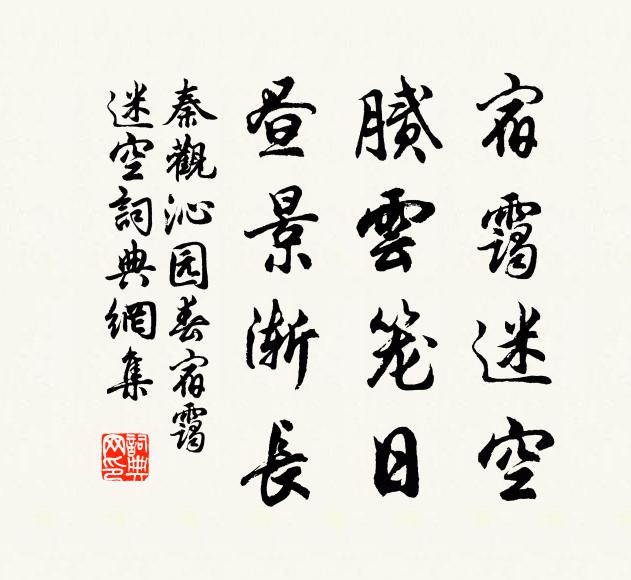 宿靄迷空
膩雲笼日
昼景漸長
秦觀沁园春宿靄
迷空詞典網集
詞典網印